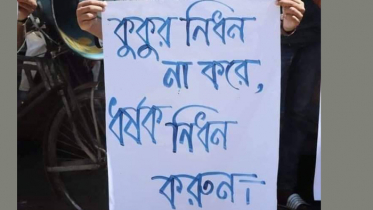 কুকুর নিধন
না করে,
ধর্ষক নিধন
করুন।